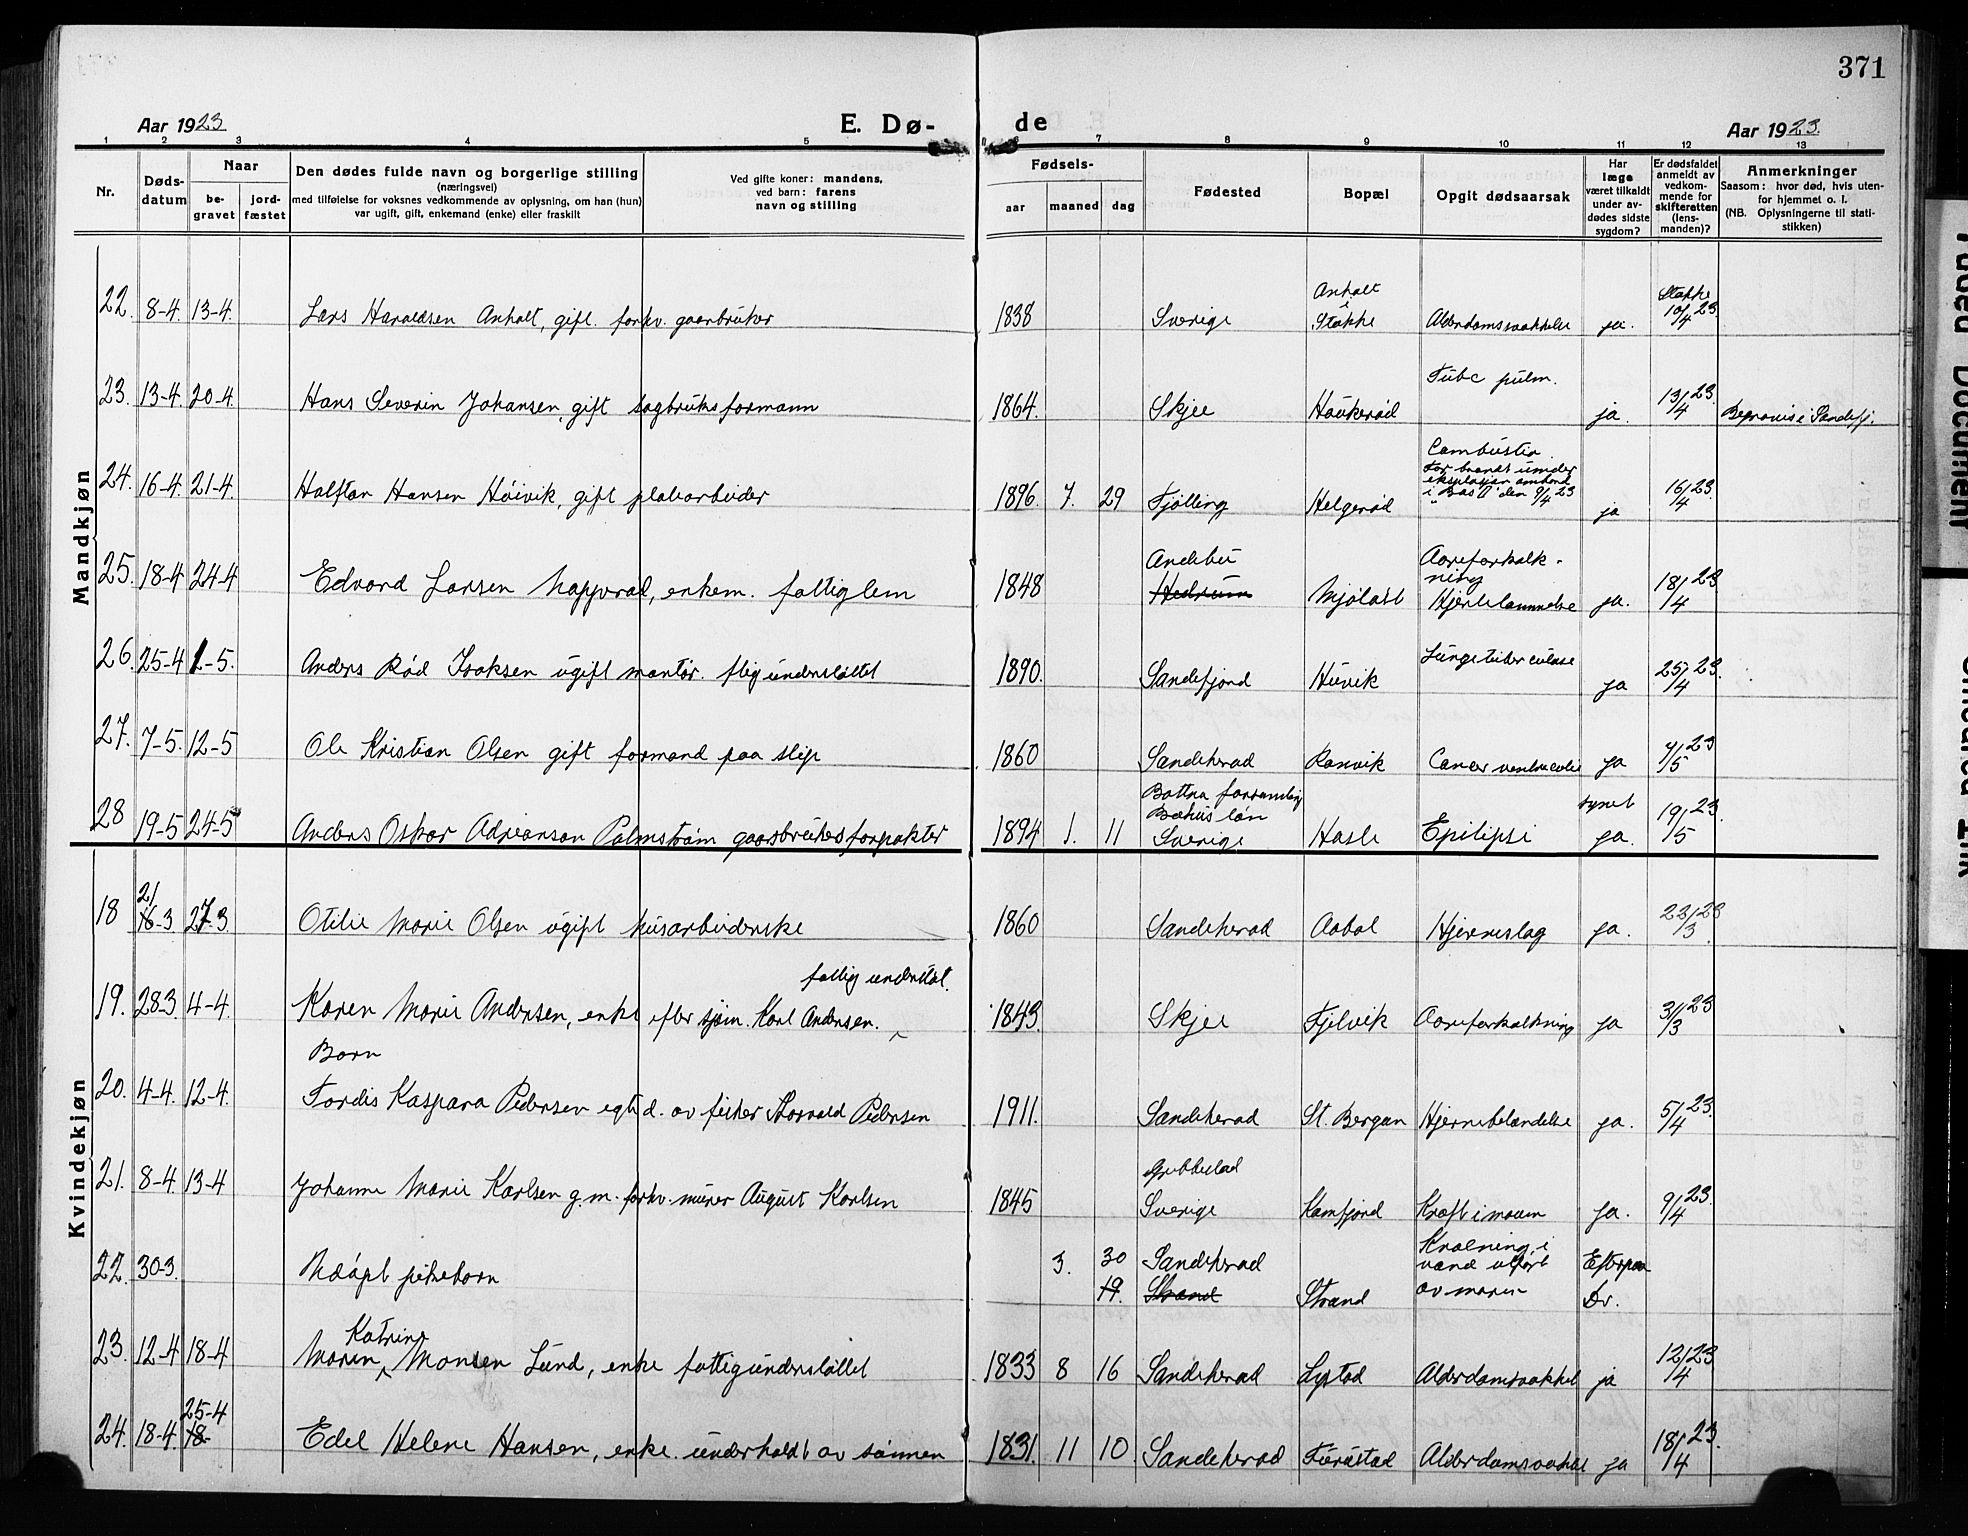 371
Aar 1923
E. Dø-
de
Aar 1923.
1 2 3 4 5 6 7 8 9 10 11 12 13
Nr.
Døds-
datum
Naar
be-
gravet
jord-
fæstet
Den dødes fulde navn og borgerlige stilling
(næringsvei)
med tilføielse for voksnes vedkommende av oplysning, om han (hun)
var ugift, gift, enkemand (enke) eller fraskilt
Ved gifte koner: mandens,
ved barn: farens
navn og stilling
Fødsels-
aar
maaned
dag
Fødested
Bopæl
Opgit dødsaarsak
Har
læge
været tilkaldt
under av-
dødes sidste
sygdom?
Er dødsfaldet
anmeldt av
vedkom-
mende for
skifteretten
(lens-
manden)?
Anmerkninger
Saasom: hvor død, hvis uten-
for hjemmet o. l.
(NB. Oplysningerne til stati-
stikken)
Mandkjøn
22. 8-4. 13-4. Lars Haraldsen Anholt, gift. forhv. gaarbruker 1838 Sverige Anholt i Stokke Alderdomssvakkelse ja. Stokke 10/4 23.
23. 13-4. 20-4. Hans Severin Johansen, gift sagbruksformann 1864. Skjee Haukerød Tubc pulm. ja. 13/4 23. Begraves i Sandefj.
24. 16-4. 21-4. Halfdan Hansen Høivik, gift platearbeider 1896. 7. 29 Tjølling Helgerød Combustio. Forbrændt under eksplosjon ombord i "Bas II" den 9/4 23 ja 16/4 23.
25. 18-4 24-4 Edvard Larsen Napperød, enkem. fattiglem 1848 Andebu Hedrum Mjølløst Aareforkalkning Hjertelammelse ja. 18/4 23
26. 25-4 1-5. Anders Rød Isaksen ugift montør. ftig understøttet 1890. Sandefjord Huvik Lungetuberculose ja 25/4 23.
27. 7-5. 12-5 Ole Kristian Olsen gift formand paa slip 1860 Sandeherad Ranvik Cancer ventriculi ja 7/5 23
28 19-5 24-5 Anders Oskar Adrianson Palmstrøm gaardbruksforpakter 1894 1. 11 Bottna forsamling Bohus län Sverige Hasle Epilepsi synet ja. 19/5 23.
Kvindekjøn
18 21/16-3 27-3 Otilie Marie Olsen ugift husarbeiderske 1860 Sandeherad Aabol Hjerneslag ja. 22/3 23.
19. 28-3 4-4. Karen Marie Andersen, enke efter sjøm. Karl Andersen. fattig understøt. 1843. Skjee Fjelvik Aareforkalkning ja 31/3 23
20. 4-4. 12-4. Barn Tordis Kaspara Pedersen egte d. av fisker Thorvald Pedersen 1911. Sandeherad St. Bergan Hjernebetændelse ja. 5/4 23.
21. 8-4. 13-4 Johanne Marie Karlsen g.m. forhv. murer August Karlsen 1845 Grebbestad Sverige Kamfjord Kræft i maven ja. 9/4 23.
22. 30-3. Udøpt pikebarn 3. 30 19. Sandeherad Strand Strand Kvælning i vand utført av moren Efterpaa Dr.
23. 12-4 18-4 Maren Katrine Monsen Lund, enke fattigunderstøttet 1833 8 16 Sandeherad Lystad Alderdomssvakkel ja 12/4 23
24. 18-4. 25-4 18- Edel Helene Hansen, enke. underholdt av sønnen 1831. 11 10 Sandeherad Furustad Alderdomssvakkel ja 18/4 23.